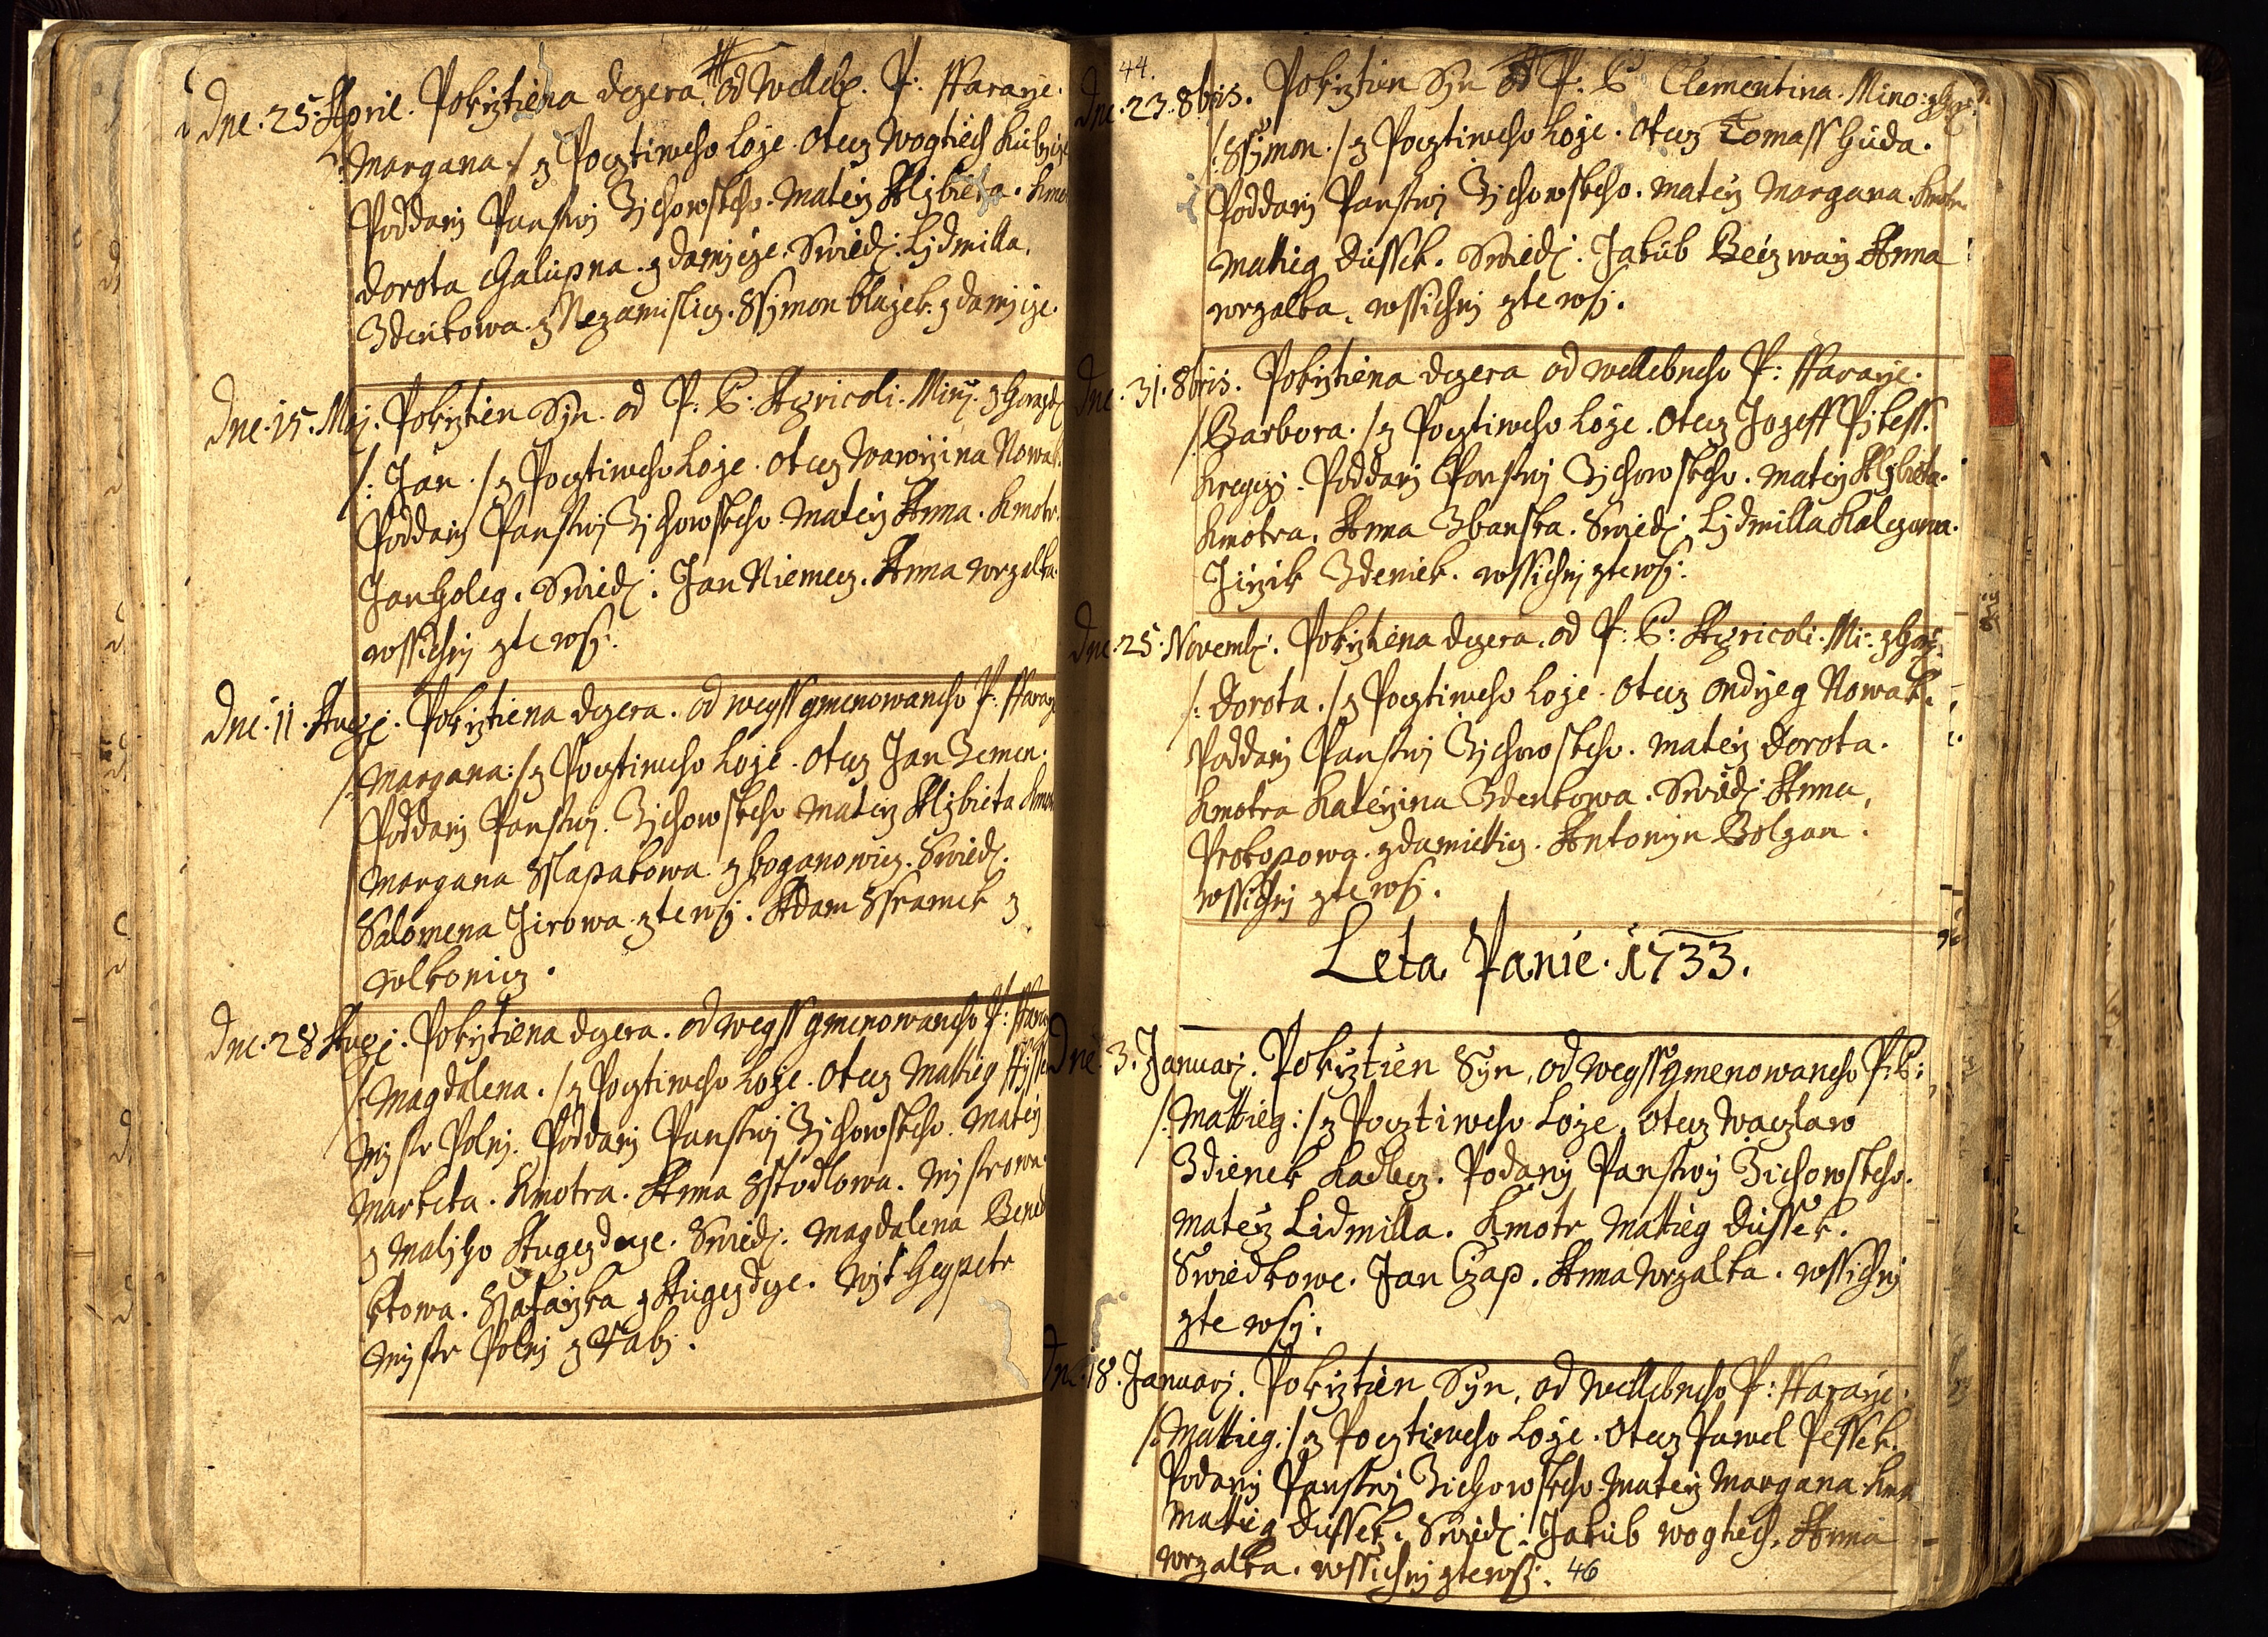 Dne. 25. April. Pokrztiena dczera od Welleb. P: ffararze.
/: Margana :/ z Pocztiweho Loze. Otecz Wogtiech
Poddany Panstwi Zichowskeho. Materz Alzbieta.
Dorota Chalupna. z damicze. Swied: Lidmilla
Zdenkowa. z Nezamislicz. Ssymon Blazek. z damicze.
Dne. 15. Maj. Pokrztien Syn. od P. P. Agricoli. Min:
/: Jan :/ z Pocztiweho Loze. Otecz Wawrzina Nowak.
Poddany Panstwi Zichowskeho. Materz Anna. Kmotr.
Jan Holeg. Swied: Jan Niemecz. Anna Wrzalka.
wssichni zte wsy.
Dne. 11. Aug: Pokrztiena dczera. od wegss gmenowaneho P: ffararze
/: Margana :/ z Pocztiweho Loze. Otecz Jan Zemen.
Poddany Panstwi Zichowskeho. Materz Alzbieta
Margana Sslapakowa z boganowicz. Swied:
Salomena Jirowa zte wsy. Adam Ssramek z
wolkonicz.
Dne. 28. Aug: Pokrztiena dczera. od wegss gmenowaneho P:
/: Magdalena :/ z Pocztiweho Loze. Otecz Mattieg
Mistr Polny. Poddany Panstwi Zichowskeho. Materz
Marketa. Kmotra. Anna Sstodlowa. Mistrowa
z Maliho Augezdcze. Swied: Magdalena Bened
ktowa. Ssafarzka z Augezdcze. Wit Hegpetr
Mistr Polny z Rabi.
44.
Dne. 23. 8bris. Pokrztien Syn od P: P Clementina. Mino:
/: Ssymon :/ z Pocztiweho Loze. Otecz Tomass Huda.
Poddany Panstwi Zichowskeho. Materz Margana. Kmotr
Mattieg Dussek. Swied: Jakub Anna
Wrzalka. wssichni zte wsy.
Dne. 31. 8bris. Pokrztiena dczera od wellebneho P: ffararze.
/: Barbora :/ z Pocztiweho Loze. Otecz Jozeff
Kregczi. Poddany Panstwi Zichowskeho. Materz Alzbieta.
Kmotra. Anna Zbanska. Swied: Lidmilla
Jirzik Zdeniek. wssichni zte wsy.
Dne. 25. Novemb: Pokrztiena dczera. od P: P: Agricoli. Mi:
/: Dorota :/ z Pocztiweho Loze. Otecz Ondrzeg Nowak.
Poddany Panstwi Zichowskeho. Materz Dorota.
Kmotra Katerzina Zdenkowa. Swied: Anna
Prokopowa. Antonyn Bolzan.
wssichni zte wsy.
Leta Panie. 1733.
Dne. 3. Januarj. Pokrztien Syn, od wegss gmenowaneho P: P:
/: Mattieg :/ z Pocztiweho Loze. Otecz Waczlaw
Zdienek Kadlecz. Podany Panstwy Zichowskeho.
Materz Lidmilla. Kmotr Mattieg Dussek.
Swiedkowe. Jan Czap. Anna Wrzalka. wssichni
zte wsy.
Dne. 18. Januarj. Pokrztien Syn, od wellebneho P: ffararze.
/: Mattieg :/ z Pocztiweho Loze. Otecz Pawel Pessek.
Podany Panstwi Zichowskeho. Materz Margana
Mattieg Dussek. Swied: Jakub Wogtiech. Anna
Wrzalka. wssichni zte wsy.
46